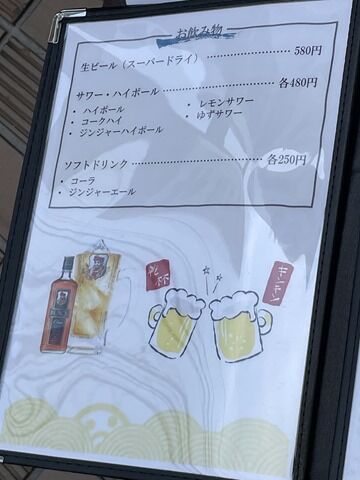 お飲み物
生ビール（スーパードライ） 580円
サワー・ハイボール 各480円
・ハイボール ・レモンサワー
・コークハイ ・ゆずサワー
・ジンジャーハイボール
ソフトドリンク 各250円
・コーラ
・ジンジャーエール
乾杯
キンキン